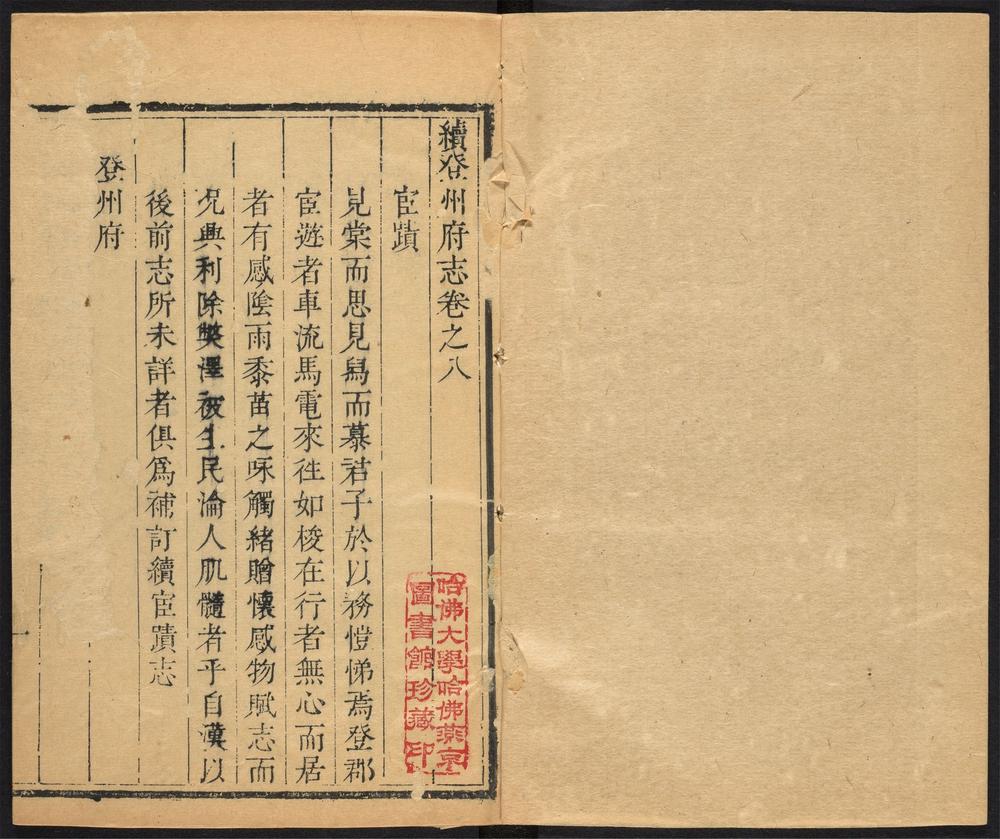 續登州府志卷之八
宦蹟
見棠而思見舄而慕君子於以務愷悌焉登郡
宦遊者車流馬電來往如梭在行者無心而居
者有感陰雨黍苗之咏觸緒贈懷感物賦志而
况興利除獘澤被生民淪人肌髓者乎自漢以
後前志所未詳者俱爲補訂續宦蹟志
登州府
哈佛大學哈佛燕京
圖書館珍藏印